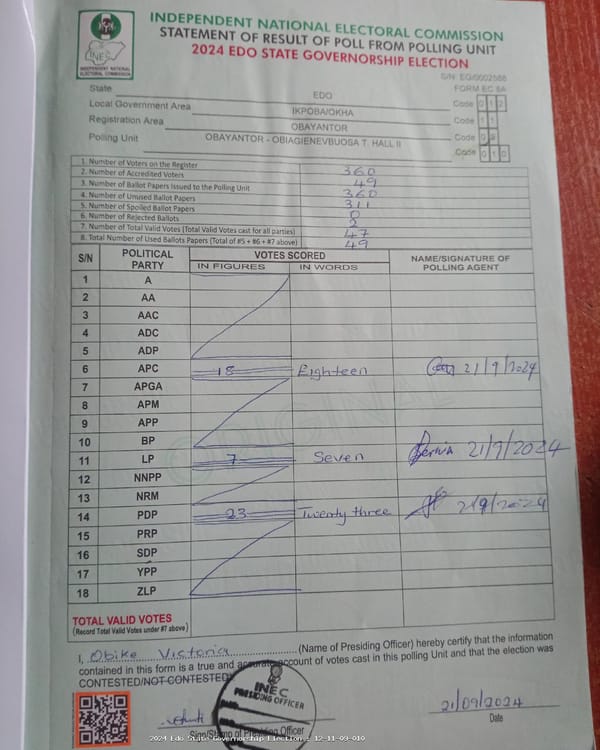 INDEPENDENT NATIONAL ELECTORAL COMMISSION
STATEMENT OF RESULT OF POLL FROM POLLING UNIT
2024 EDO STATE GOVERNORSHIP ELECTION
INEC
INDEPENDENT NATIONAL
ELECTORAL COMMISSION
S/N: EG/0002586
FORM EC 8A
State EDO Code 0 1 2
Local Government Area IKPOBA/OKHA Code 1 1
Registration Area OBAYANTOR Code 0 9
Polling Unit OBAYANTOR - OBIAGIENEVBUOSA T. HALL II Code 0 1 0
1. Number of Voters on the Register 360
2. Number of Accredited Voters 49
3. Number of Ballot Papers Issued to the Polling Unit 360
4. Number of Unused Ballot Papers 311
5. Number of Spoiled Ballot Papers 0
6. Number of Rejected Ballots 2
7. Number of Total Valid Votes (Total Valid Votes cast for all parties) 47
8. Total Number of Used Ballots Papers (Total of #5 + #6 + #7 above) 49
S/N POLITICAL PARTY VOTES SCORED NAME/SIGNATURE OF POLLING AGENT
IN FIGURES IN WORDS
1 A
2 AA
3 AAC
4 ADC
5 ADP
6 APC 18 Eighteen 21/9/2024
7 APGA
8 APM
9 APP
10 BP
11 LP 7 Seven 21/9/2024
12 NNPP
13 NRM
14 PDP 23 Twenty three 21/9/2024
15 PRP
16 SDP
17 YPP
18 ZLP
TOTAL VALID VOTES
(Record Total Valid Votes under #7 above)
I, Obike Victoria (Name of Presiding Officer) hereby certify that the information
contained in this form is a true and accurate account of votes cast in this polling Unit and that the election was
CONTESTED/NOT CONTESTED
INEC
PRESIDING OFFICER
21/09/2024
Sign/Stamp of Presiding Officer Date
2024 Edo State Governorship Election : 12-11-09-010